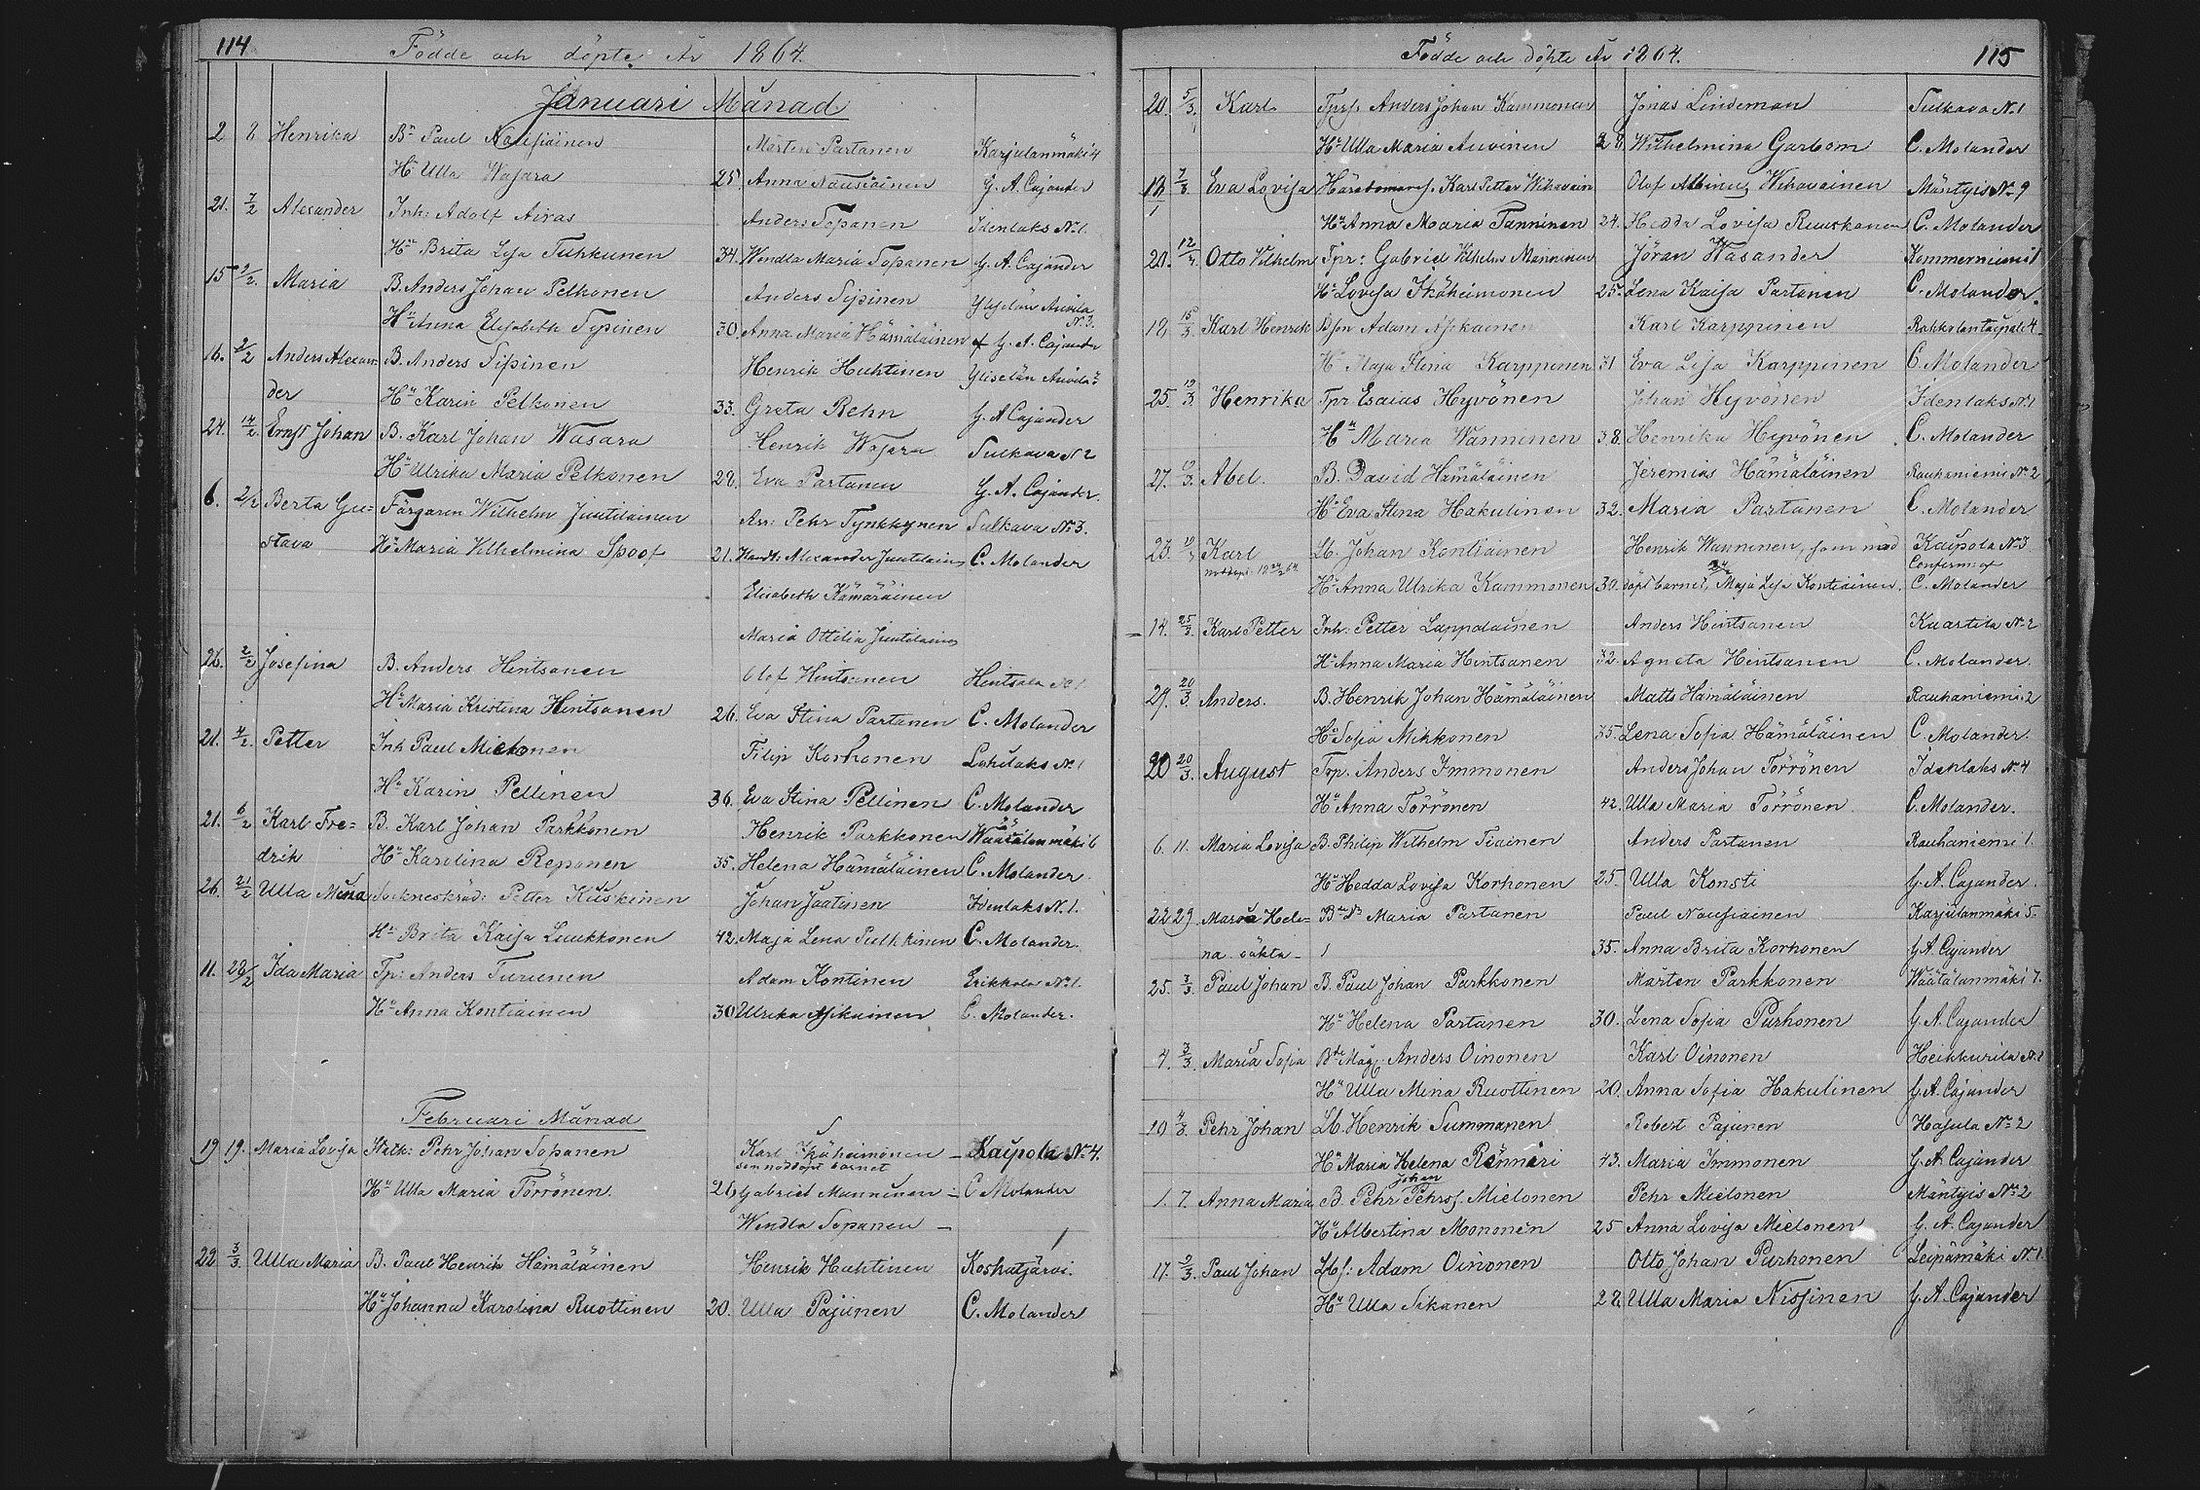 114
Födde och döpte År 1864.
Januari Månad
2 8 Henrika Bn Paul Nousiainen Mårten Partanen Karjulanmäki 4
Hu Ulla Wasara 25. Anna Nousiainen G. A. Cajander
21. 7/2 Alexander Inh: Adolf Airas Anders Sopanen Idenlaks No 1.
Hu Brita Lisa Tuhkunen 34. Wendla Maria Sopanen G. A. Cajander
15 2/2. Maria B. Anders Johan Pelkonen Anders Sipinen Ylisälän Auvila
No 3.
Hu Anna Elisabeth Sipinen 30. Anna Maria Hämäläinen af G. A. Cajander
16. 2/2 Anders Alexan- B. Anders Sipinen Henrik Huhtinen Yliselän Auvila
der Hu Karin Pelkonen 33. Greta Rehn G. A. Cajander
24. 14/2. Ernst Johan B. Karl Johan Wasara Henrik Wasara Sulkava N 2
Hu Ulrika Maria Pelkonen 28. Eva Partanen G. A. Cajander.
6. 2/2 Berta Gu= Färgaren Wilhelm Juutilainen Arr: Pehr Tynkkynen Sulkava No 3.
stava Hu Maria Vilhelmina Spoof 21. Handl: Alexander Juutilainen C. Molander
Elisabeth Kämäräinen
Maria Ottilia Juutilainen
26. 2/2 Josefina B. Anders Hintsanen Olof Hintsanen Hintsala No 1
Hu Maria Kristina Hintsanen 26. Eva Stina Partanen C. Molander
21. 4/2 Petter Inh Paul Mielonen Filip Korhonen Lohilaks No 1
Hu Karin Pellinen 36. Eva Stina Pellinen C. Molander
21. 6/2 Karl Fre= B. Karl Johan Parkkonen Henrik Parkkonen Wäätälänmäki 6
drik Hu Karolina Reponen 35. Helena Hämäläinen C. Molander
26. 21/2 Ulla Mina Sockneskräd: Petter Kuskinen Johan Jaatinen Idenlaks N. 1.
Hu Brita Kaisa Luukkonen 42. Maja Lena Pulkkinen C. Molander.
11. 28/2 Ida Maria Tp: Anders Turunen Adam Kontinen Erikkala No 1.
Hu Anna Kontiainen 30 Ulrika Asikainen C. Molander.
Februari Månad
19 19. Maria Lovisa Statk: Pehr Johan Sopanen Karl Ikäheimonen – Kaipola No 4.
som nöddöpt barnet
Hu Ulla Maria Törrönen. 26 Gabriel Manninen – C Molander
Wendla Sopanen –
22 3/3. Ulla Maria B. Paul Henrik Hämäläinen Henrik Huhtinen Koskutjärvi.
Hu Johanna Karolina Ruottinen 20. Ulla Pajunen C. Molander
Födde och döpte År 1864. 115
20. 5/3. Karl Tprs. Anders Johan Kammonen Jonas Lindeman Sulkava N. 1
Hu Ulla Maria Auvinen 28 Wilhelmina Garbom C. Molander
13/1 7/3 Eva Lovisa Häradsmans. Karl Petter Wihavain Olof Albinus Wihavainen Mäntyis No 9
Hu Anna Maria Tanninen 24. Hedda Lovisa Ruuskanen C. Molander
20. 12/3. Otto Vilhelm Tpr: Gabriel Vilhelm Manninen Jöran Wasander Kommerniemi 1
Hu Lovisa Ikäheimonen 25. Lena Kaisa Partanen C. Molander.
18. 15/3 Karl Henrik Bson Adam Asikainen Karl Karppinen Rakkolantaipale 4.
Hu Maja Stina Karppinen 31 Eva Lisa Karppinen C. Molander
25. 19/3. Henrika Tpr Esaias Hyvönen Johan Hyvönen Idenlaks N 1
Hu Maria Wanninen 38. Henrika Hyvönen C. Molander
27. 19/3. Abel. B. David Hämäläinen Jeremias Hämäläinen Rauhaniemi No 2
Hu Eva Stina Hakulinen 32. Maria Partanen C. Molander
23. 19/3 Karl Lb. Johan Kontiainen Henrik Wanninen, som nöd Kaipola No 3
Confirm: af
Hu Anna Ulrika Kammonen 30. döpt barnet, Maja Lisa Kontiainen. C. Molander
14. 25/3. Karl Petter Inh. Petter Lappalainen Anders Hintsanen Kaartila No 2
Hu Anna Maria Hintsanen 32. Agneta Hintsanen C. Molander.
29. 20/3. Anders. B. Henrik Johan Hämäläinen Matts Hämäläinen Rauhaniemi. 2
Hu Sofia Mikkonen 35. Lena Sofia Hämäläinen C. Molander.
20 20/3. August Trp. Anders Immonen Anders Johan Törrönen Idenlaks No 4
Hu Anna Törrönen 42. Ulla Maria Törrönen C. Molander.
6. 11. Maria Lovisa B. Philip Wilhelm Tiainen Anders Partanen Rauhaniemi 1.
Hu Hedda Lovisa Korhonen 25. Ulla Konsti G. A. Cajander.
22 29. Maria Hele= Bdr Maria Partanen Paul Nousiainen Karjulanmäki 5.
na. oäkta – 35. Anna Brita Korhonen G. A. Cajander
25. 3/3. Paul Johan B. Paul Johan Parkkonen Mårten Parkkonen Wäätälänmäki 7.
Hu Helena Partanen 30. Lena Sofia Purhonen G. A. Cajander
4. 3/3. Maria Sofia Bde Måg. Anders Oinonen Karl Oinonen Heikkurila No 2
Hu Ulla Mina Ruottinen 20. Anna Sofia Hakulinen G. A. Cajander
10 4/3. Pehr Johan Lb. Henrik Summanen Robert Pajunen Hasula No 2
Hu Maria Helena Ränneri 43. Maria Immonen G. A. Cajander
Johan
1. 7. Anna Maria B. Pehr Pehrs. Mielonen Pehr Mielonen Mäntyis No 2
Hu Albertina Mononen 25 Anna Lovisa Mielonen G. A. Cajander
17. 9/3. Paul Johan Lbs: Adam Oinonen Otto Johan Purhonen Leipämäki No 1.
Hu Ulla Sikanen 28 Ulla Maria Nissinen G. A. Cajander